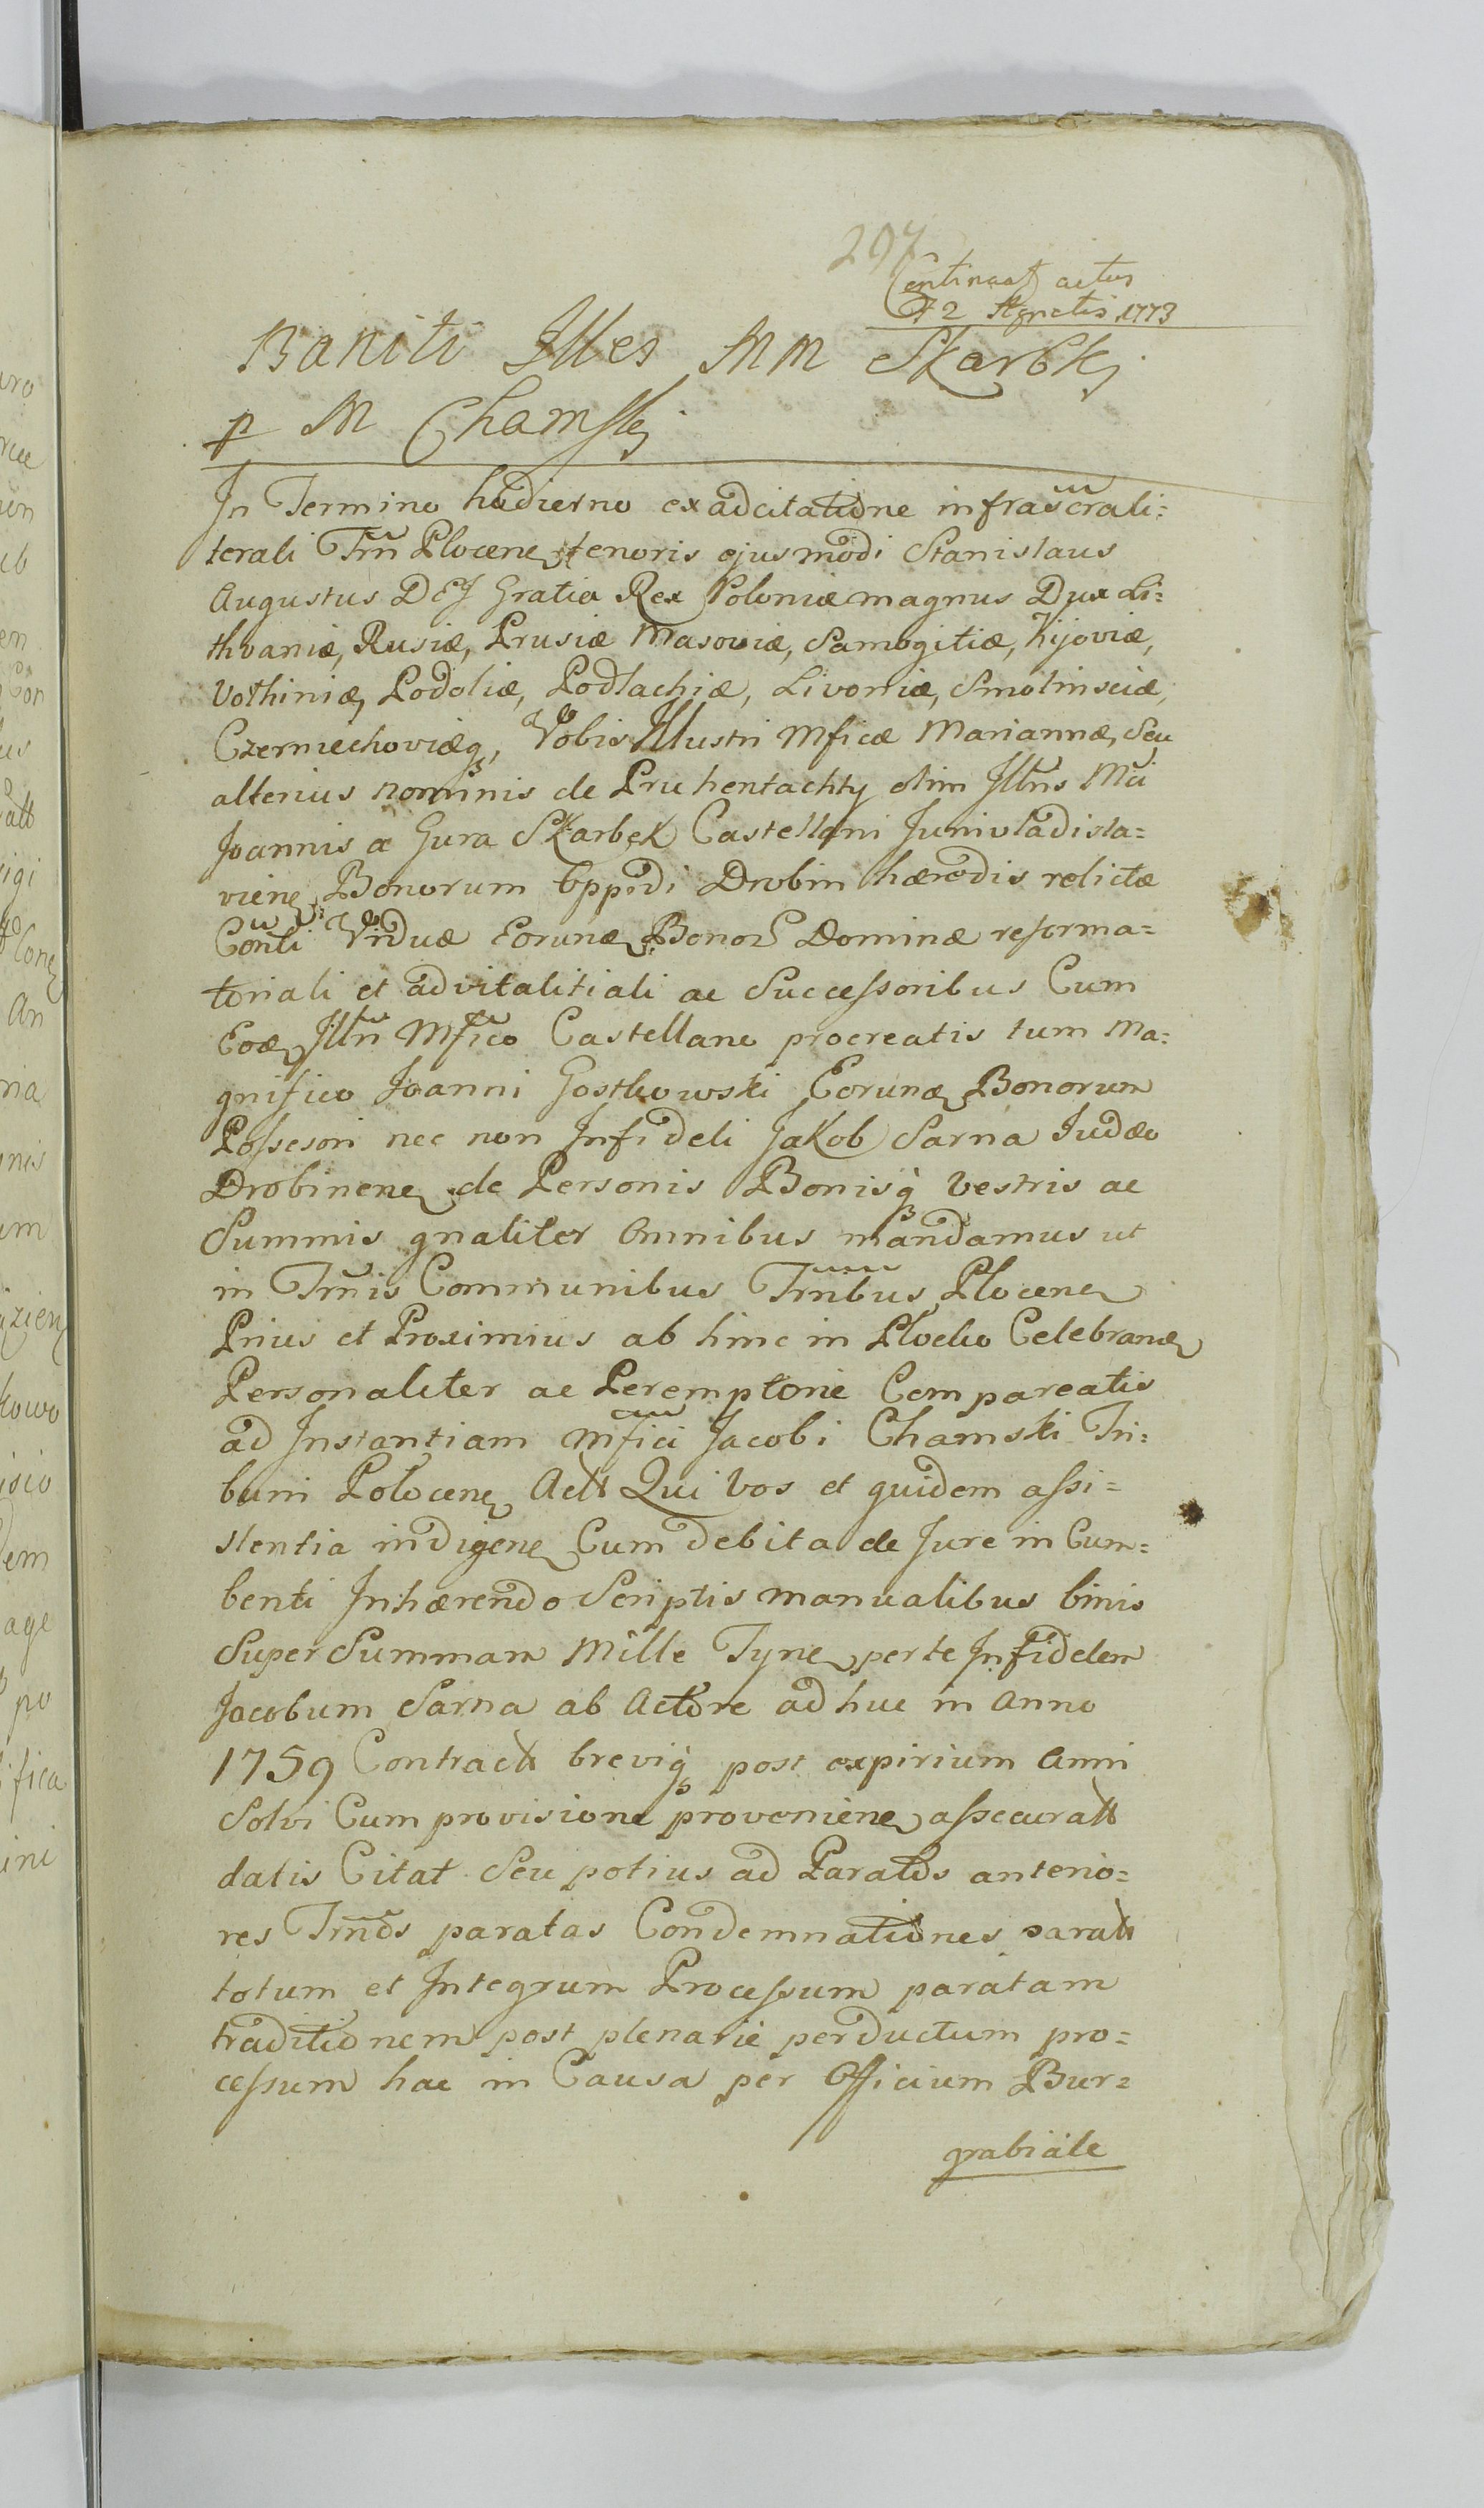 297
Continuat actus
F 2 Agnetis 1773
Baniti Illes MM Skarbki
p M Chamski
In Termino hodierno exadcitatione infrascrali=
terali Trrn Plocene tenoris ejusmodi Stanislaus
Augustus DEJ Gratia Rex Poloniæ magnus Dux Li=
thvaniæ, Rusiæ, Prusiæ Masoviæ, Samogitiæ, Kijoviæ,
Volhiniæ, Podoliæ, Podlachiæ, Livoniæ, Smolinsciæ,
Czerniechoviæq, Vobis Illustri Mficæ Mariannæ, Seu
alterius nominis de Pruhentachty olim Illrns Mci
Joannis a Gura Skarbek Castellani Junivladisla=
viene, Bonorum Oppodi Drobin hærodis relictæ
Conti Viduæ Eorunæ Bonor Dominæ reforma=
toriali et advitalitiali ac Successoribus Cum
Eoæ Illrn Mfico Castellano procreatis tum Ma=
gnifico Joanni Gostkowski Eorunæ Bonorum
Possesori nec non Infideli Jakob Sarna Judæo
Drobinene de Personis Bonisq Vestris ac
Summis gnaliter Omnibus mandamus ut
in Trnis Communibus Trnibus Plocene
Prius et Proximius ab hinc in Plocko Celebrane
Personaliter ac Peremptorie Compareatis
ad Instantiam Mfici Jacobi Chamski Tri=
buni Polocene Actt Qui Vos et quidem assi=
stentia indigene Cum debita de Jure in Cum=
benti Inhærendo Scriptis manualibus binis
Super Summam Mille Tyne per te Infidelem
Jacobum Sarna ab Actore ad huc in Anno
1759 Contractt breviq post expirium Anni
Solvi Cum provisione proveniene assecuratt
datis Citat Seu potius ad Paratas anterio=
res Trnos paratas Condemnationes paratt
totum et Integrum Processum paratam
traditionem post plenarie perductum pro=
cessum hac in Causa per Officium Bur=
grabiale